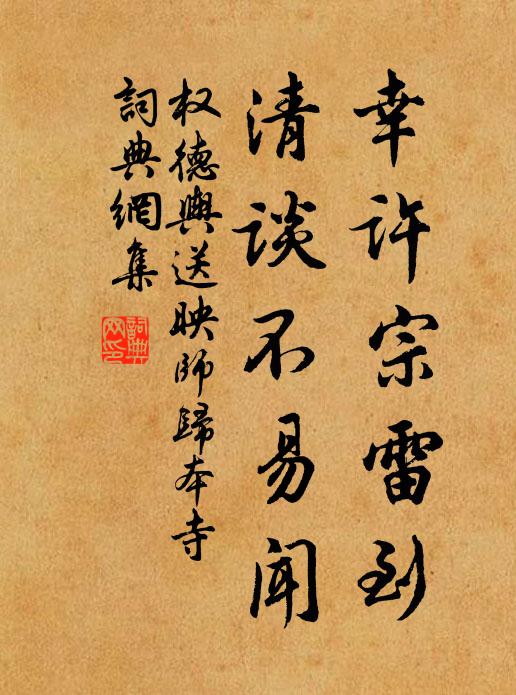 幸许宗雷到
清谈不易闻
权德舆送映师歸本寺
詞典網集
詞典網印